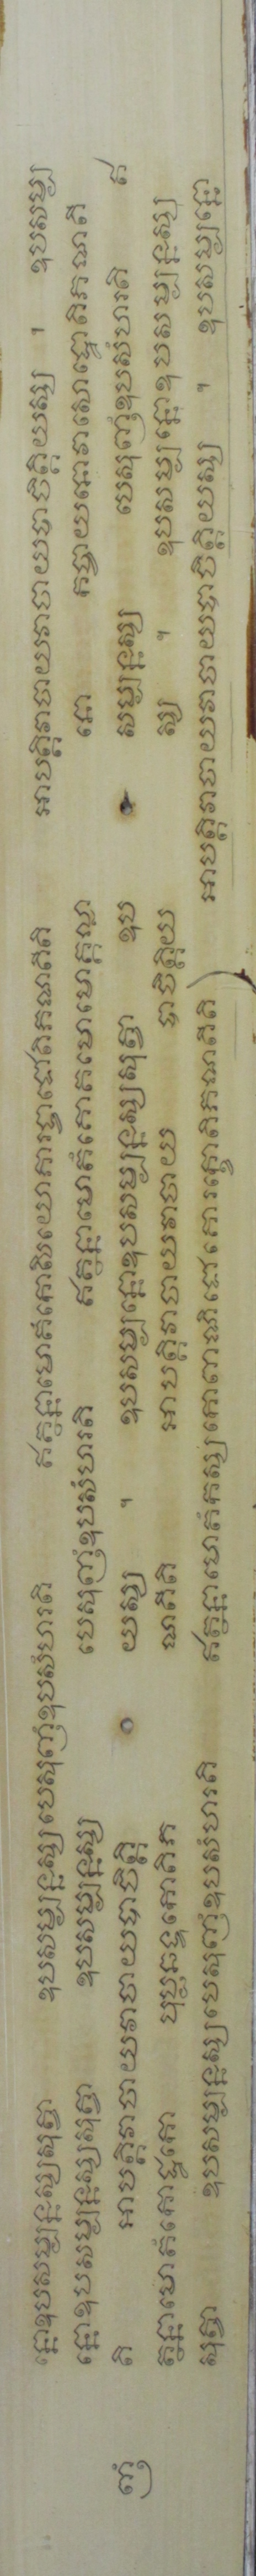 ន្នោឧបសម្បន្នស្សសុត្វា ឧបសម្បន្នស្សបេសុញុំឧបសំហរតិ ឥត្ថន្នាមោតំកោសិយោភារទ្វាជោតិភណតីតិ អាបត្តិវាចាយវាចាយបាចិត្តិយស្ស ។ ឧបសម្ប
ន្នោឧបសម្បន្នស្សសុត្វា ឧបសម្បន្នស្ស បេសុញុំឧបសំហរតិ ឥត្ថន្នាមោតំគោតមោមោគ្គល្លា នោ កច្ចាយនោវាសេដ្ឋោតិភណតី
ញុំ តិ អាបត្តិវាចាយវាចាយបាចិត្តិ យស្ស ។ ឧបសម្បន្នោឧបសម្បន្នស្សសុត្វា ឧប សម្បន្នស្ស បេសុញុំឧបសំហរតិ ឥ
ត្ថន្នាមោតំកោដ្ឋកោ បុប្ផឆឌ្ឌកោតិភ ណតីតិ អាបត្តិវាចាយវាចាយ បាចិត្តិយ ស្ស ។ ឧបសម្បន្នោឧបសម្បន្នស្ស
សុត្វា ឧបសម្បន្នស្សបេសុញុំឧបសំហរតិ ឥត្ថន្នាមោតំកស្សកោវាណិជោគោរក្ខោតិភណតីតិ អាបត្តិវាចាយវាចាយបាចិត្តិយស្ស ។ ឧបសម្បន្នោ